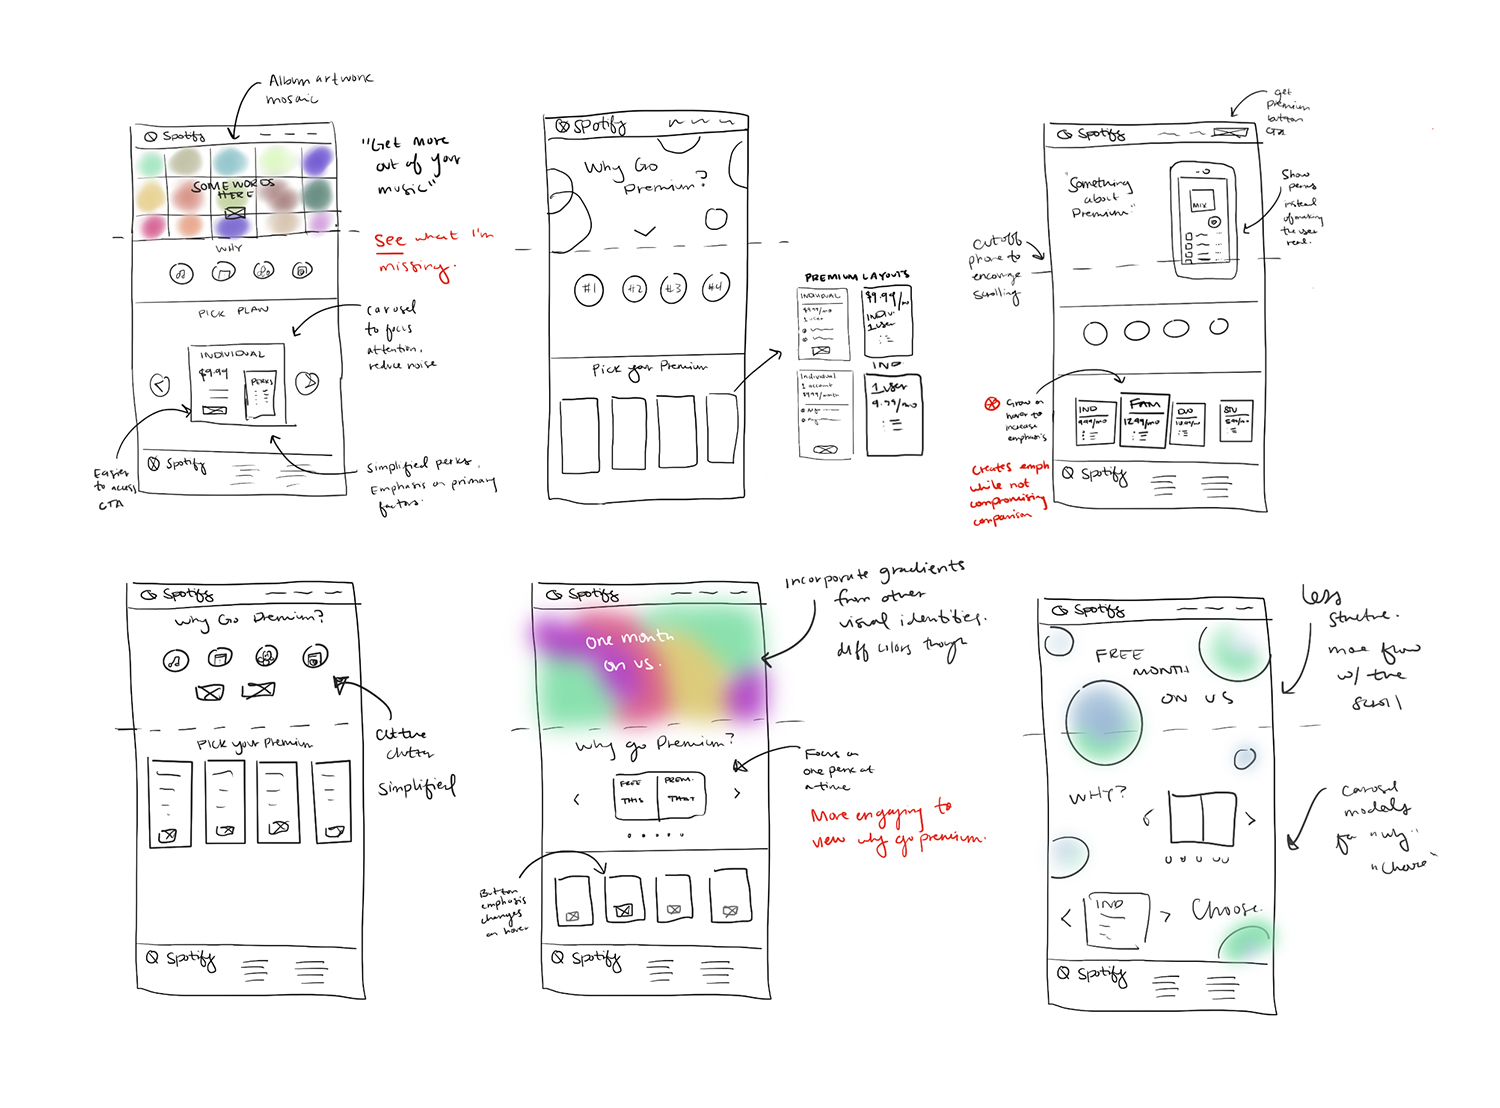 Album artwork
mosaic
Spotify
SOME WORDS
HERE
WHY
PICK PLAN
INDIVIDUAL
$9.99
PERKS
Spotify
"Get more
out of your
music"
See what I'm
missing.
carousel
to focus
attention,
reduce noise
Easier
to access
CTA
Simplified perks.
Emphasis on primary
factors.
Spotify
Why Go
Premium?
#1 #2 #3 #4
Pick your Premium
PREMIUM LAYOUTS
INDIVIDUAL
$9.99/mo
1 user
$9.99/mo
INDIV.
1 user
IND
Individual
1 account
$9.99/month
1 user
9.99/mo
get
premium
button
CTA
Spotify
"Something
about
Premium"
MIX
Show
perks
instead
of making
the user
read.
cutoff
phone to
encourage
scrolling
Grow on
hover to
increase
emphasis
IND
9.99/mo
FAM
12.99/mo
DUO
STU
Creates emph
while not
compromising
comparison
Spotify
Spotify
Why Go Premium?
Pick your Premium
clutter
Simplified
Spotify
Spotify
one month
on us.
Incorporate gradients
from other
visual identities.
diff colors though
Why go Premium?
FREE
THIS
PREM.
THAT
Focus on
one perk at
a time
More engaging to
view why go premium.
Button
emphasis
changes
on hover
Spotify
Spotify
FREE
MONTH
ON US
less
structure.
more flow
w/ the
scroll
WHY?
carousel
models
for "why"
IND
Choose.
Spotify